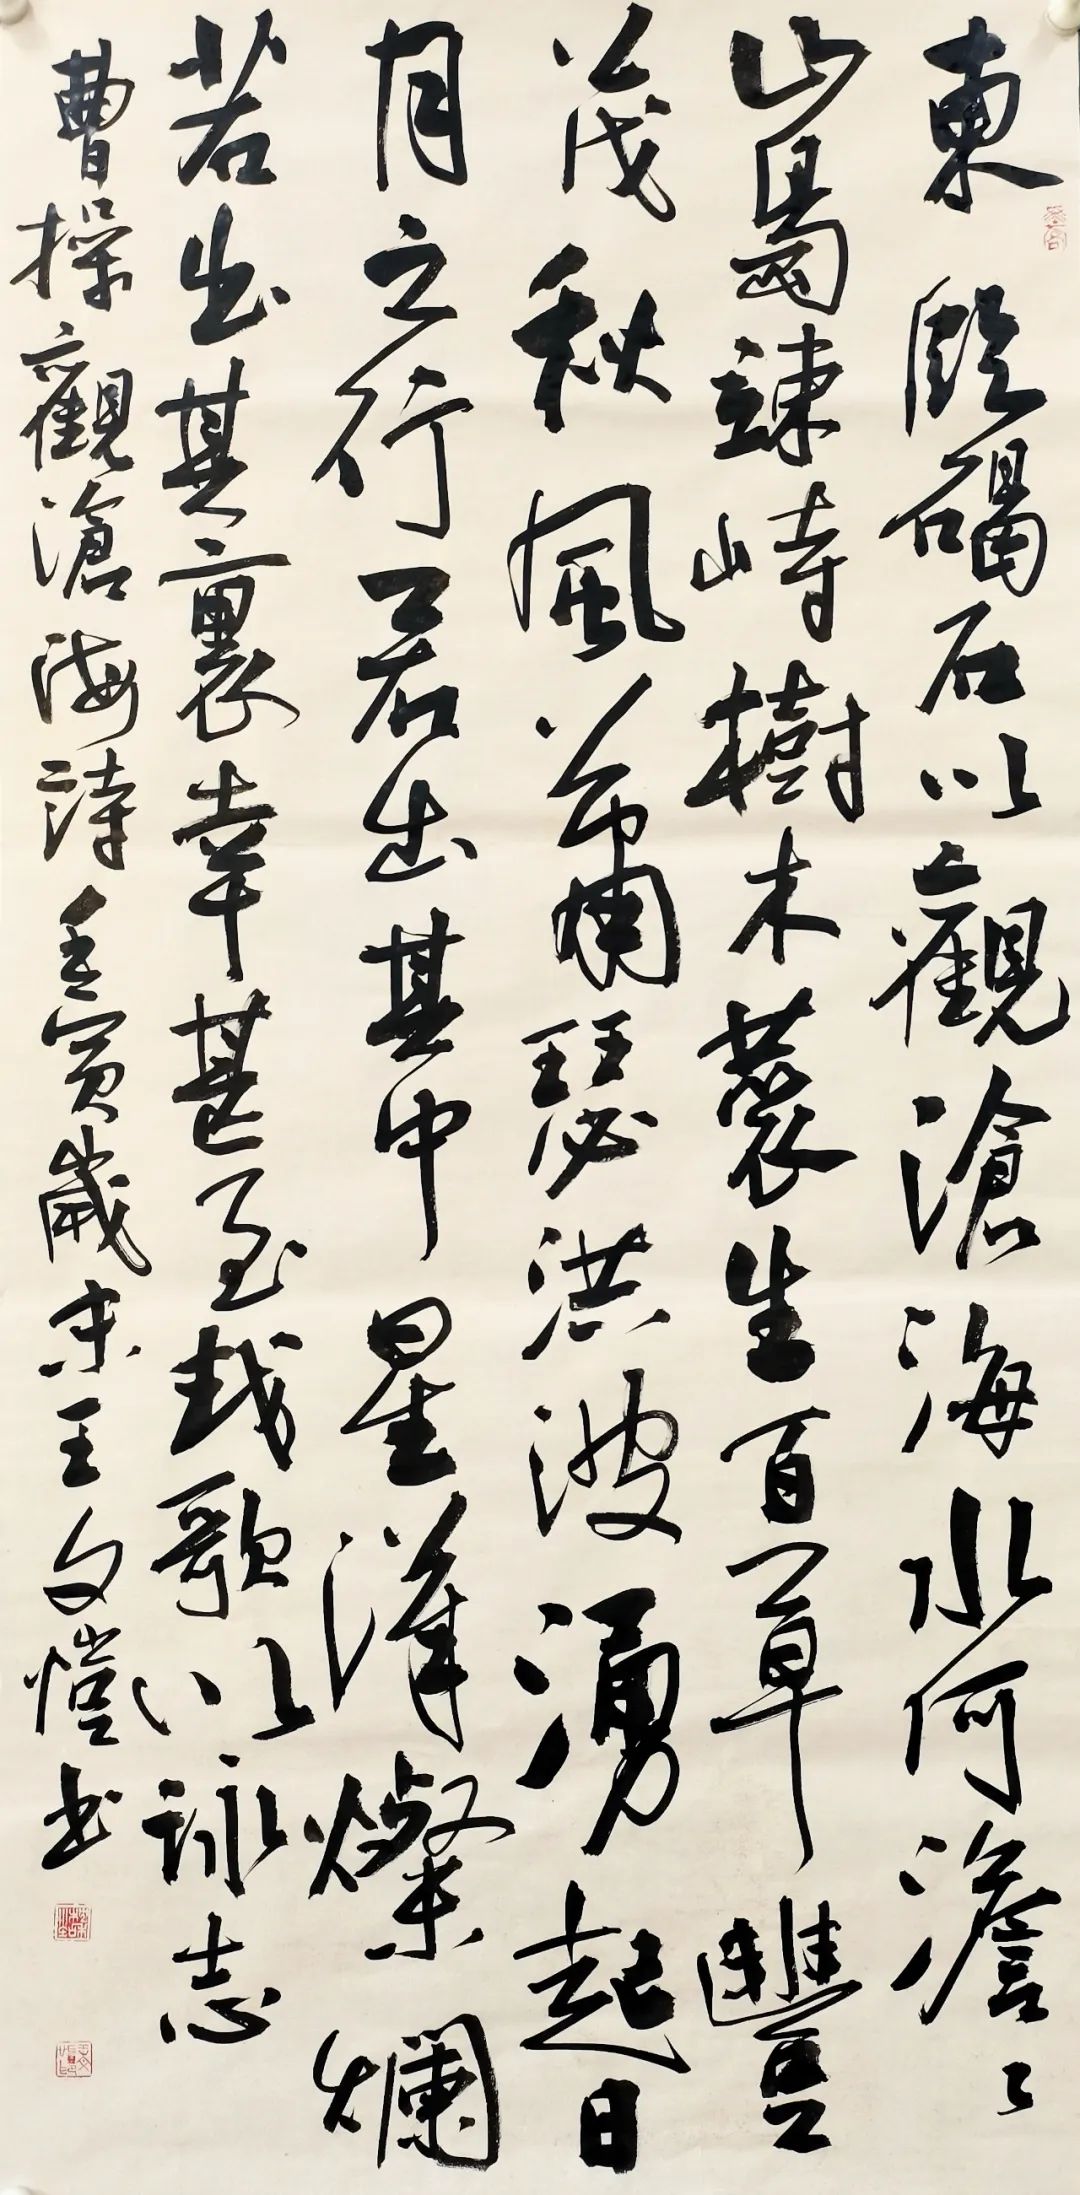 東臨碣石以觀滄海水何澹〻
山島竦峙樹木叢生百草豐
茂秋風蕭瑟洪波湧起日
月之行若出其中星漢燦爛
若出其裏幸甚至哉歌以詠志
曹操觀滄海詩壬寅歲末王文愷书